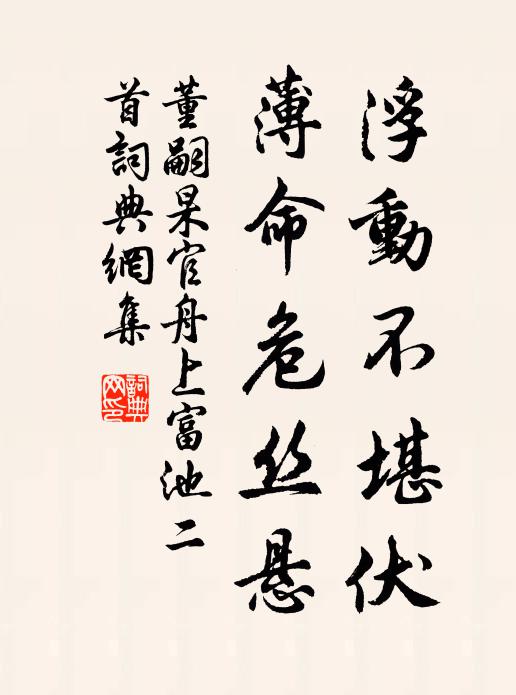 浮動不堪伏
薄命危丝悬
董嗣杲官舟上富池二
首詞典網集
詞典
网印